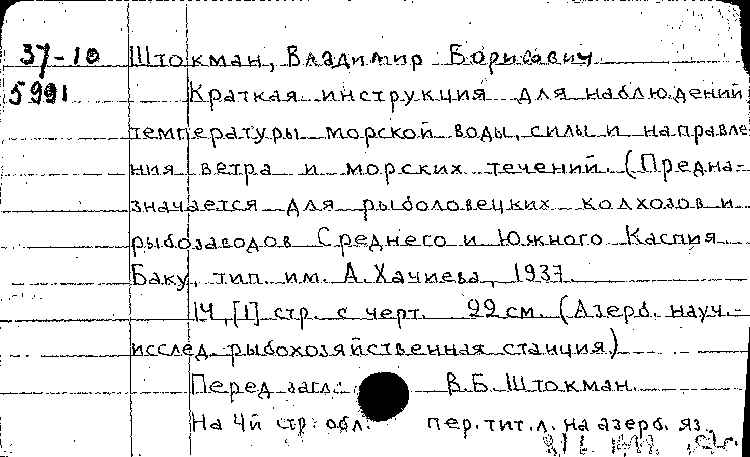 37-10 Штокман, Владимир Борисович
5991 Краткая инструкция для наблюдений
температуры морской воды, силы и направле
ния ветра и морских течений. (Предна-
значается для рыболовецких колхозов и
рыбозаводов Среднего и Южного Каспия
Баку, тип. им. А. Хачиева, 1937.
14, [1] стр. с черт. 22 см. (Азерб. науч.-
исслед. рыбохозяйственная станция)
Перед загл.: В.Б. Штокман.
На 4й стр. обл. пер. тит. л. на азерб. яз.